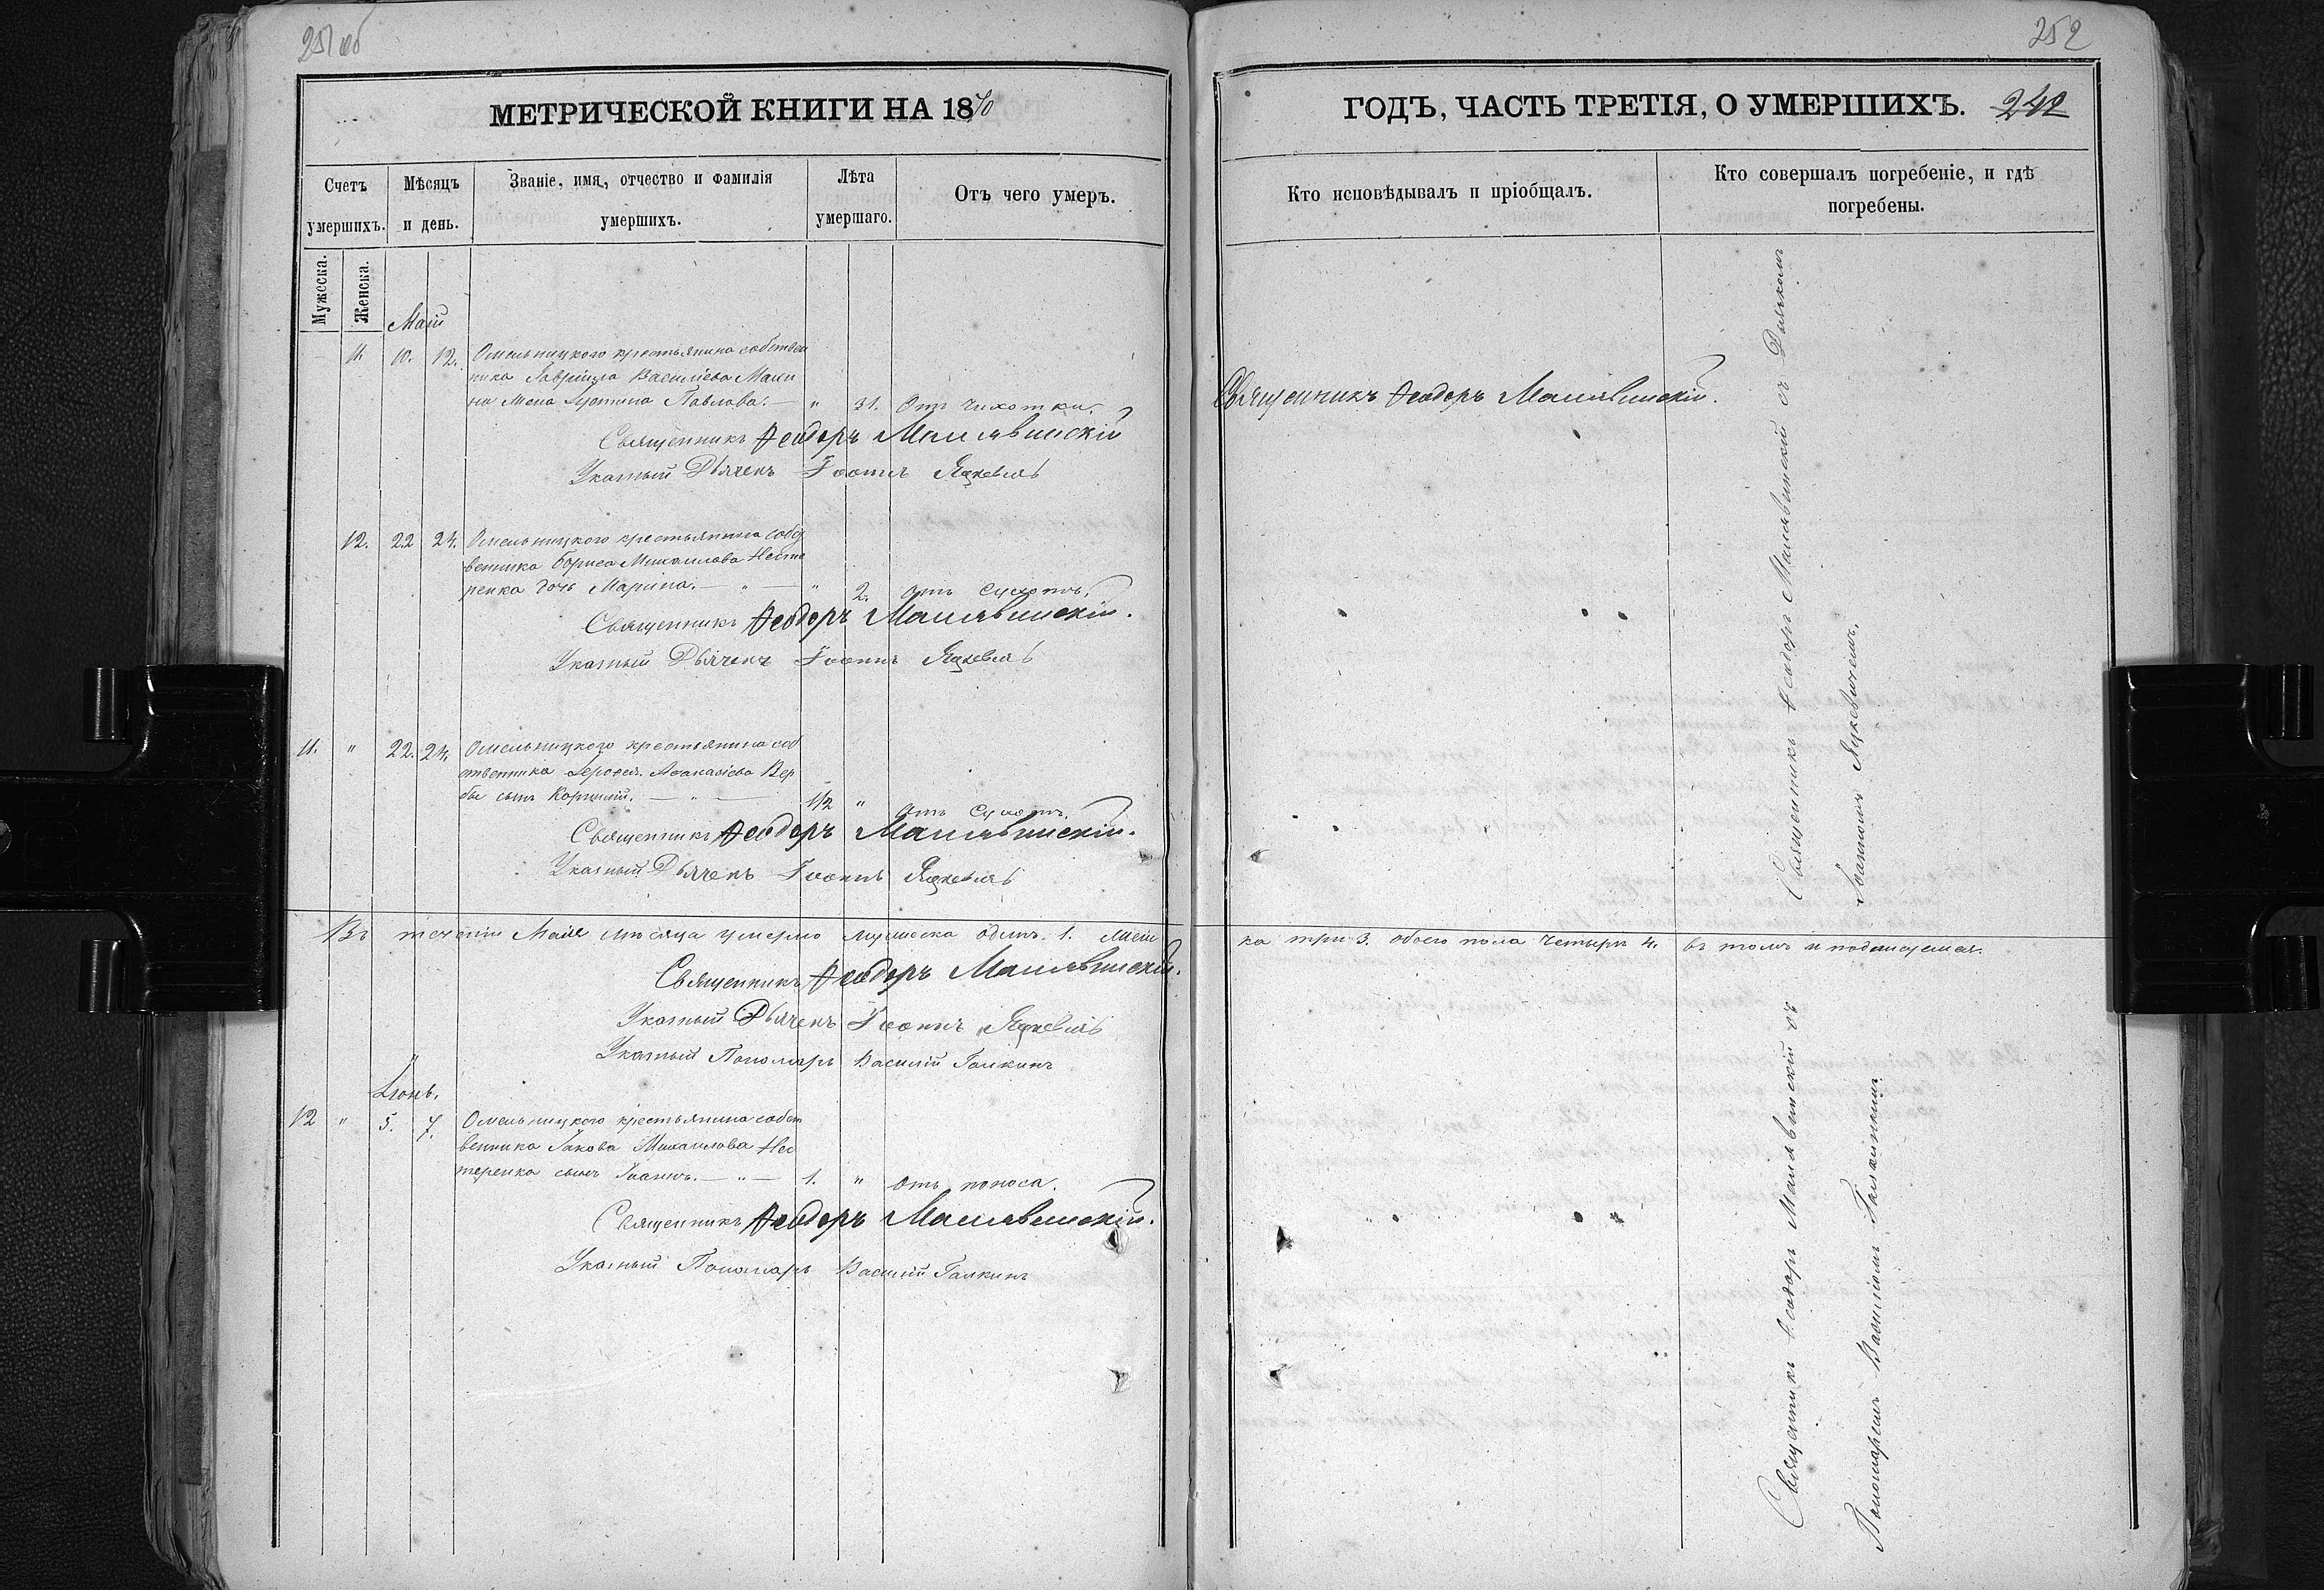 251 об
МЕТРИЧЕСКОЙ КНИГИ НА 1870
Счетъ умершихъ.
Мѣсяцъ и день.
Званіе, имя, отчество и фамилія умершихъ.
Лѣта умершаго.
Отъ чего умеръ.
Мужеска.
Женска.
Май
11. 10. 12. Омельницкого крестьянина собствен
ника Гавріила Василіева
жена Павлова. — " 31. Отъ чихотки.
Священникъ Ѳеодоръ Малявинскій
Указный Дьячекъ Іоаннъ Яцкевичъ
12. 22 24. Омельницкого крестьянина собст
венника Бориса Михаилова Несте
ренка дочь Марина. — " — " 2. Отъ сухотъ.
Священникъ Ѳеодоръ Малявинскій.
Указный Дьячекъ Іоаннъ Яцкевичъ
11. " 22. 24. Омельницкого крестьянина соб
ственника Іероѳея Аѳанасіева Вер
бы сынъ Корнилій. — " — 1/2 " Отъ сухотъ.
Священникъ Ѳеодоръ Малявинскій.
Указный Дьячекъ Іоаннъ Яцкевичъ
Въ теченіи Маія мѣсяца умерло мужеска одинъ. 1. женс
Священникъ Ѳеодоръ Малявинскій.
Указный Дьячекъ Іоаннъ Яцкевичъ
Указный Пономарь Василій Галкинъ
Іюнь.
12 " 5. 7. Омельницкого крестьянина собст
венника Іакова Михаилова Нес
теренка сынъ Іоаннъ. — " — 1. " Отъ поноса.
Священникъ Ѳеодоръ Малявинскій.
Указный Пономарь Василій Галкинъ
252
ГОДЪ, ЧАСТЬ ТРЕТІЯ, О УМЕРШИХЪ. 242
Кто исповѣдывалъ и пріобщалъ.
Кто совершалъ погребеніе, и гдѣ погребены.
Священникъ Ѳеодоръ Малявинскій.
Священникъ Ѳеодоръ Малявинскій съ Дьячкомъ
Іоанномъ Яцкевичемъ.
ка три 3. обоего пола четыри 4. въ томъ и подписуемся.
Священникъ Ѳеодоръ Малявинскій съ
Пономаремъ Василіемъ Галкинимъ.